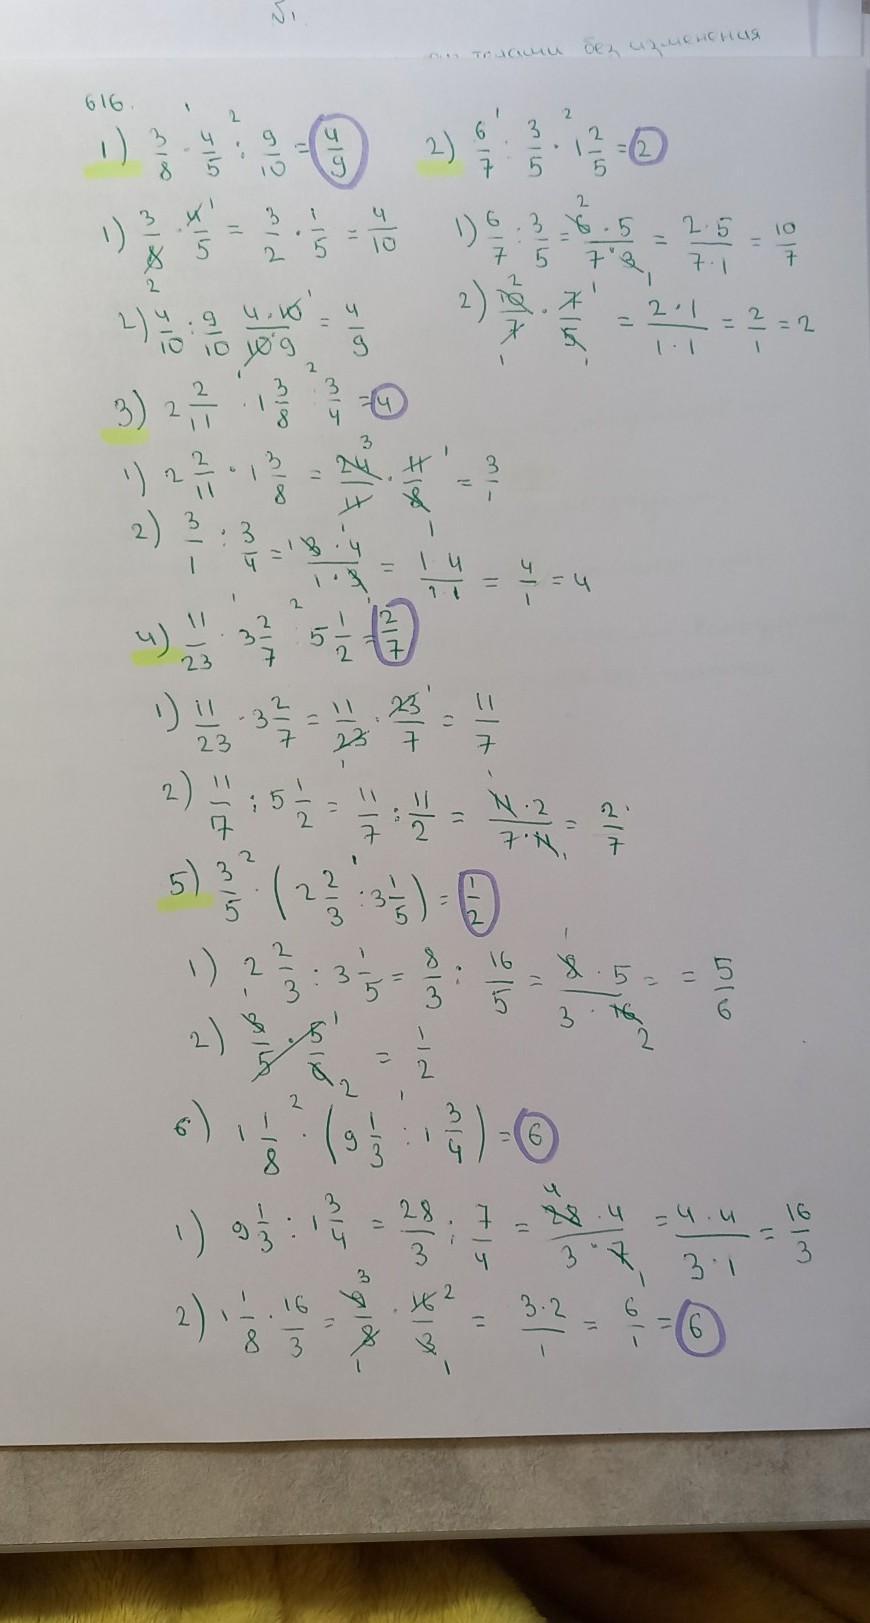 №1.
телами без изменения
616.
1) 3/8 · 4/5 : 9/10 = 4/9
1) 3/8 · 4/5 = 3/2 · 1/5 = 4/10
2) 4/10 : 9/10 4·10/10·9 = 4/9
2) 6/7 : 3/5 · 1 2/5 = 2
1) 6/7 : 3/5 = 6·5/7·3 = 2·5/7·1 = 10/7
2) 10/7 · 7/5 = 2·1/1·1 = 2/1 = 2
3) 2 2/11 · 1 3/8 : 3/4 = 4
1) 2 2/11 · 1 3/8 = 24/11 · 11/8 = 3/1
2) 3/1 : 3/4 = 3·4/1·3 = 1·4/1·1 = 4/1 = 4
4) 11/23 · 3 2/7 : 5 1/2 = 2/7
1) 11/23 · 3 2/7 = 11/23 · 23/7 = 11/7
2) 11/7 : 5 1/2 = 11/7 : 11/2 = 11·2/7·11 = 2/7
5) 3/5 · (2 2/3 : 3 1/5) = 1/2
1) 2 2/3 : 3 1/5 = 8/3 : 16/5 = 8·5/3·16 = = 5/6
2) 3/5 · 5/6 = 1/2
6) 1 1/8 · (9 1/3 : 1 3/4) = 6
1) 9 1/3 : 1 3/4 = 28/3 : 7/4 = 28·4/3·7 = 4·4/3·1 = 16/3
2) 1 1/8 · 16/3 = 9/8 · 16/3 = 3·2/1 = 6/1 = 6